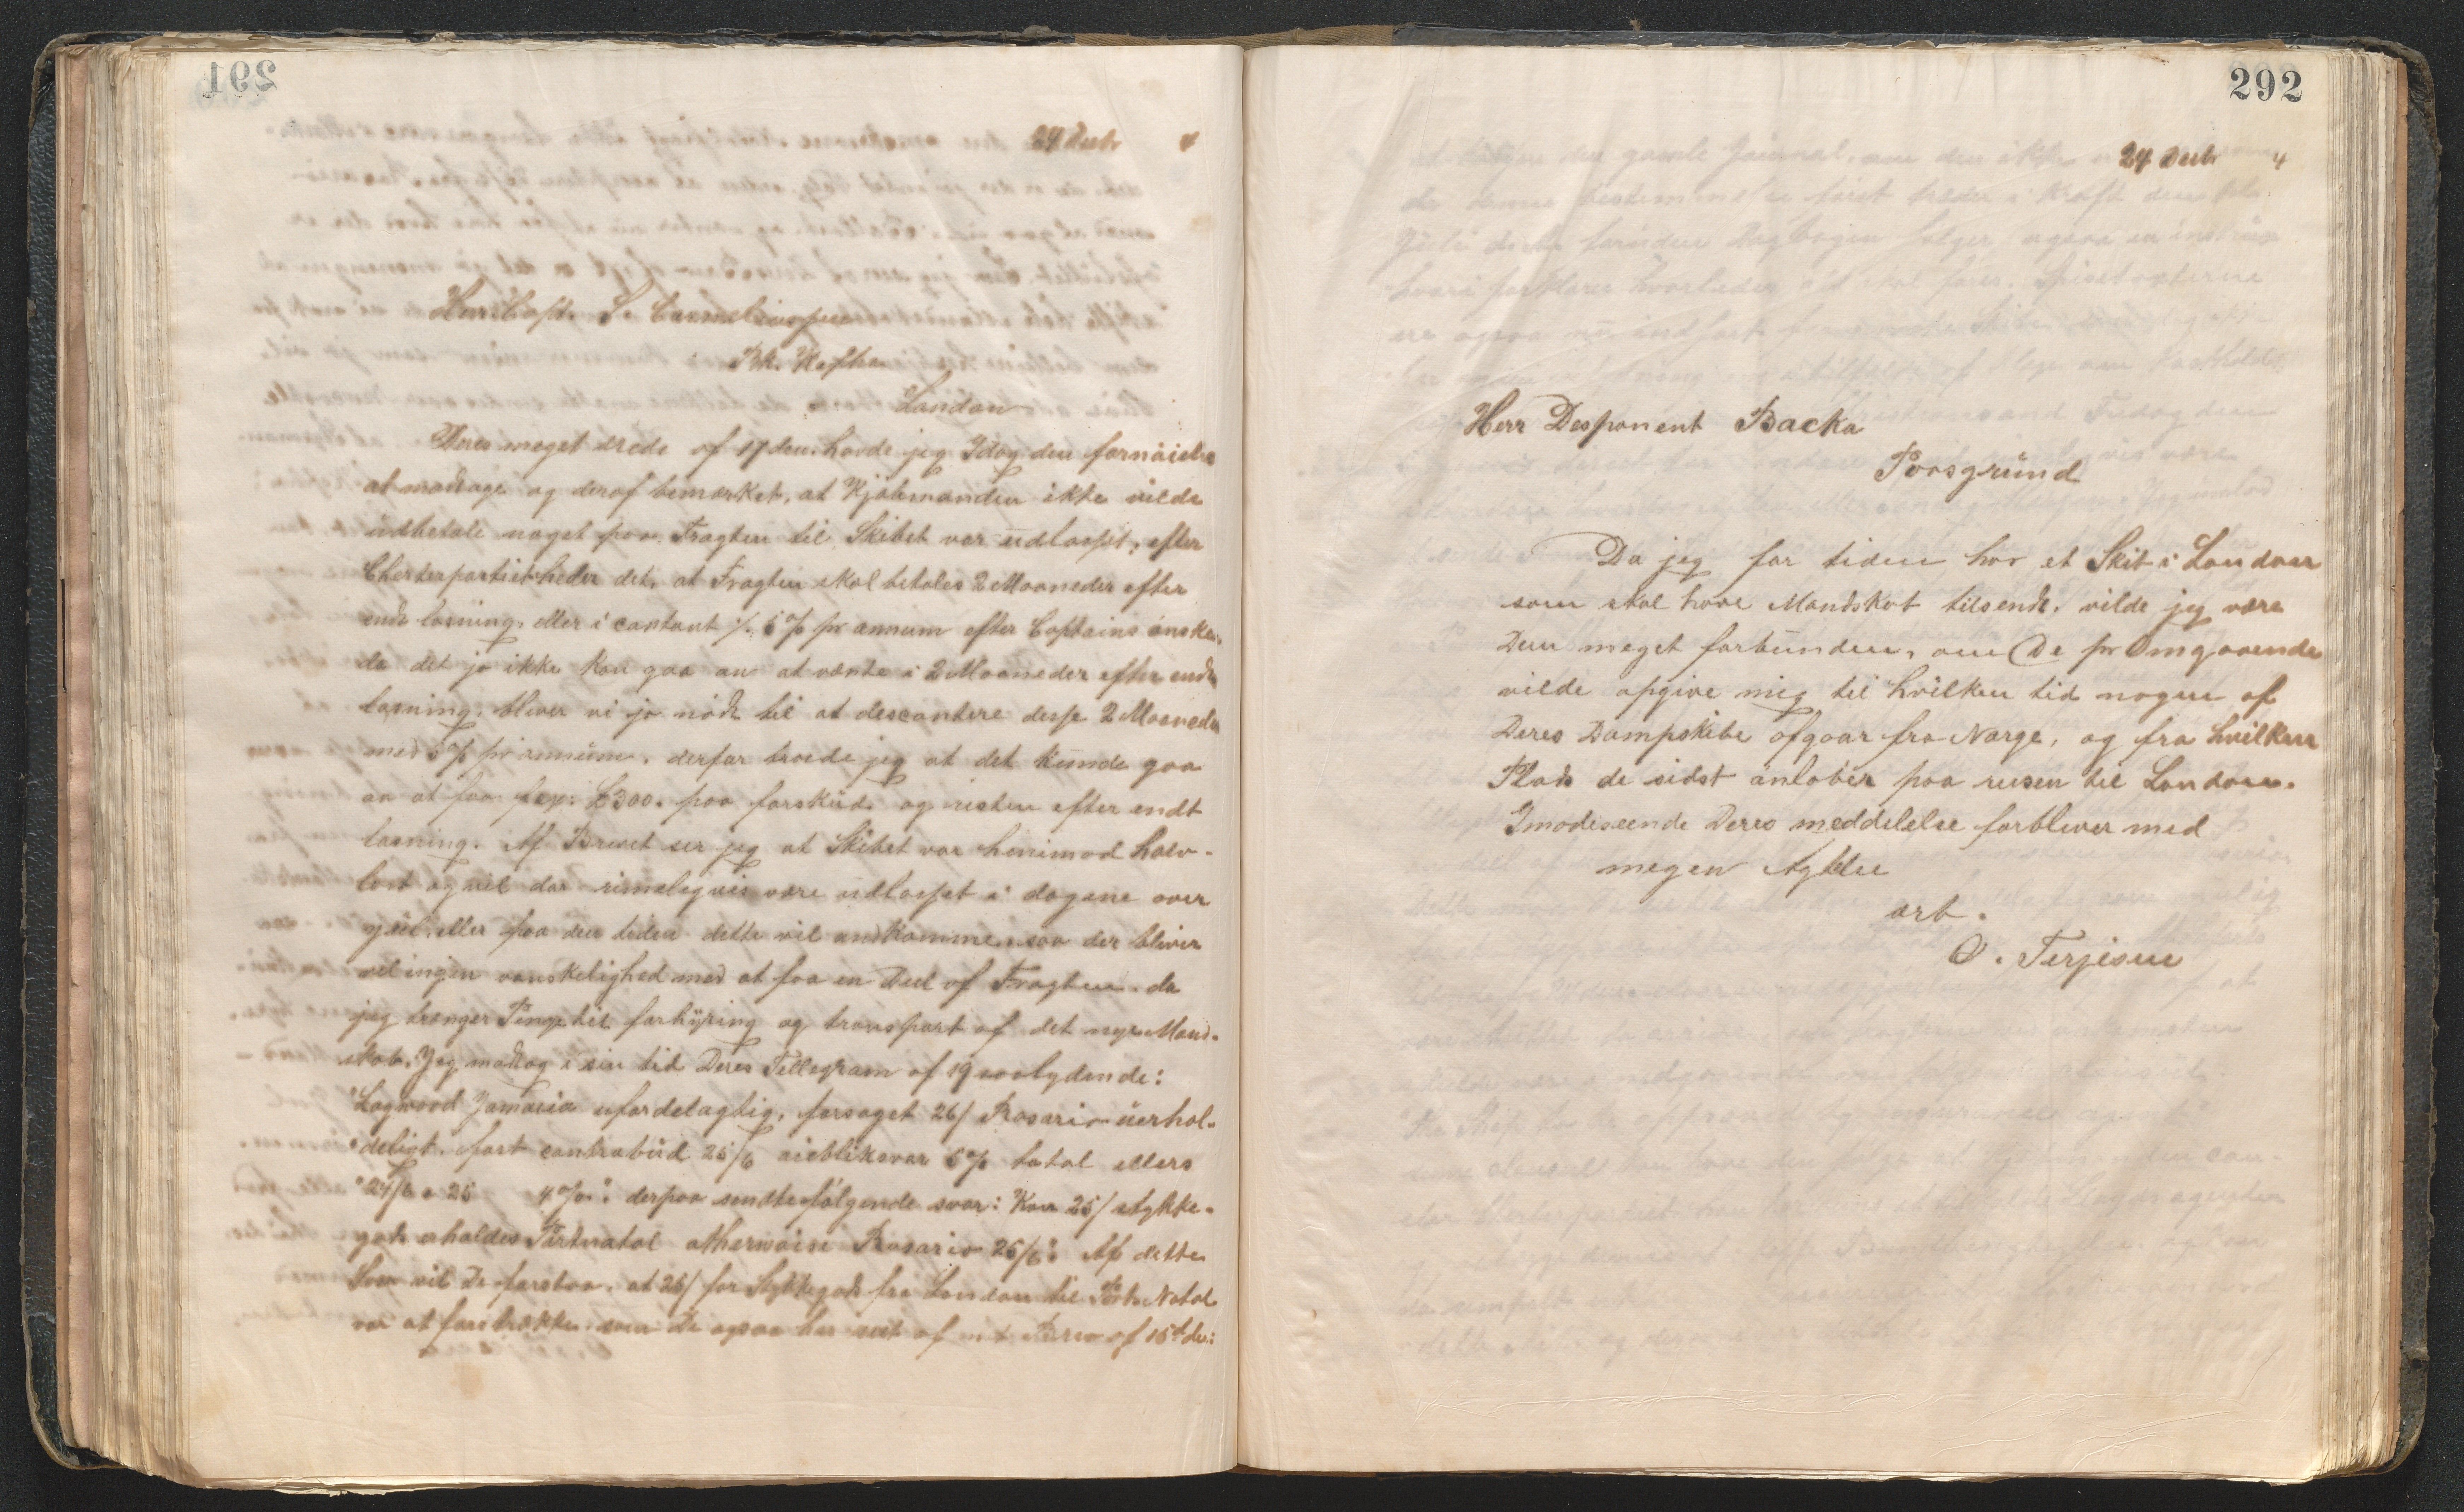 291
24 Decbr 4
Herr Capt. S.
Bk. Hafhea
London
Deres meget ærede af 17 den. havde jeg Idag den fornöielse
at modtage og deraf bemærket, at Kjöbmanden ikke vilde
udbetale noget paa Fragten til Skibet var udlosset, efter
Charterpartiet heder det, at Fragten skal betales 2 Maaneder efter
endt losning, eller i contant ./. 5 % pr annum efter Captains önske,
da det jo ikke kan gaa an at vænte i 2 Maaneder efter endt
losning, bliver vi jo nödt til at descontere desse 2 Maaneder
med 5 % pr annum, derfor troede jeg at det kunde gaa
an at faa fex: £300. paa forskud. og resten efter endt
losning. Af Brevet ser jeg at Skibet var henimod halv-
lost og vil da rimeligvis være udlosset i dagene over
jul, eller paa den tiden dette vil ankomme, saa der bliver
vel ingen vanskelighed med at faa en Deel af Fragten. da
jeg trænger Penge til forhyring og transport af det nye Mand-
skab. Jeg modtog i sin tid Deres Tellegram af 19 saalydende:
"Logwood Jamaica ufordelagtig, forsøget 26/ Rosario uerhol-
"deligt. fast contrabud 25/6 øieblikсvar 5 % total ellers
"24/6 a 25 4 %": derpaa sendte fölgende svar: Kan 25/ stykke-
gods erholdes Portnatal otherwise Rosario 25/6": Af dette
Svar vil De forstaa, at 25/ for Stykkegods fra London til Port Natal
var at foretrække. som De ogsaa har seet af mit Brev af 15de ds:
292
24 Decbr 4
Herr Desponent Backa
Porsgrund
Da jeg for tiden har et Skib i London
som skal have Mandskab tilsendt, vilde jeg være
Dem meget forbunden, om De pr Omgaaende
vilde opgive mig til hvilken tid nogen af
Deres Dampskibe afgaar fra Norge, og fra hvilken
Plads de sidst anlober paa reisen til London.
Imødeseende Deres meddelelse forbliver med
megen Agtelse
ærb.
O. Terjesen